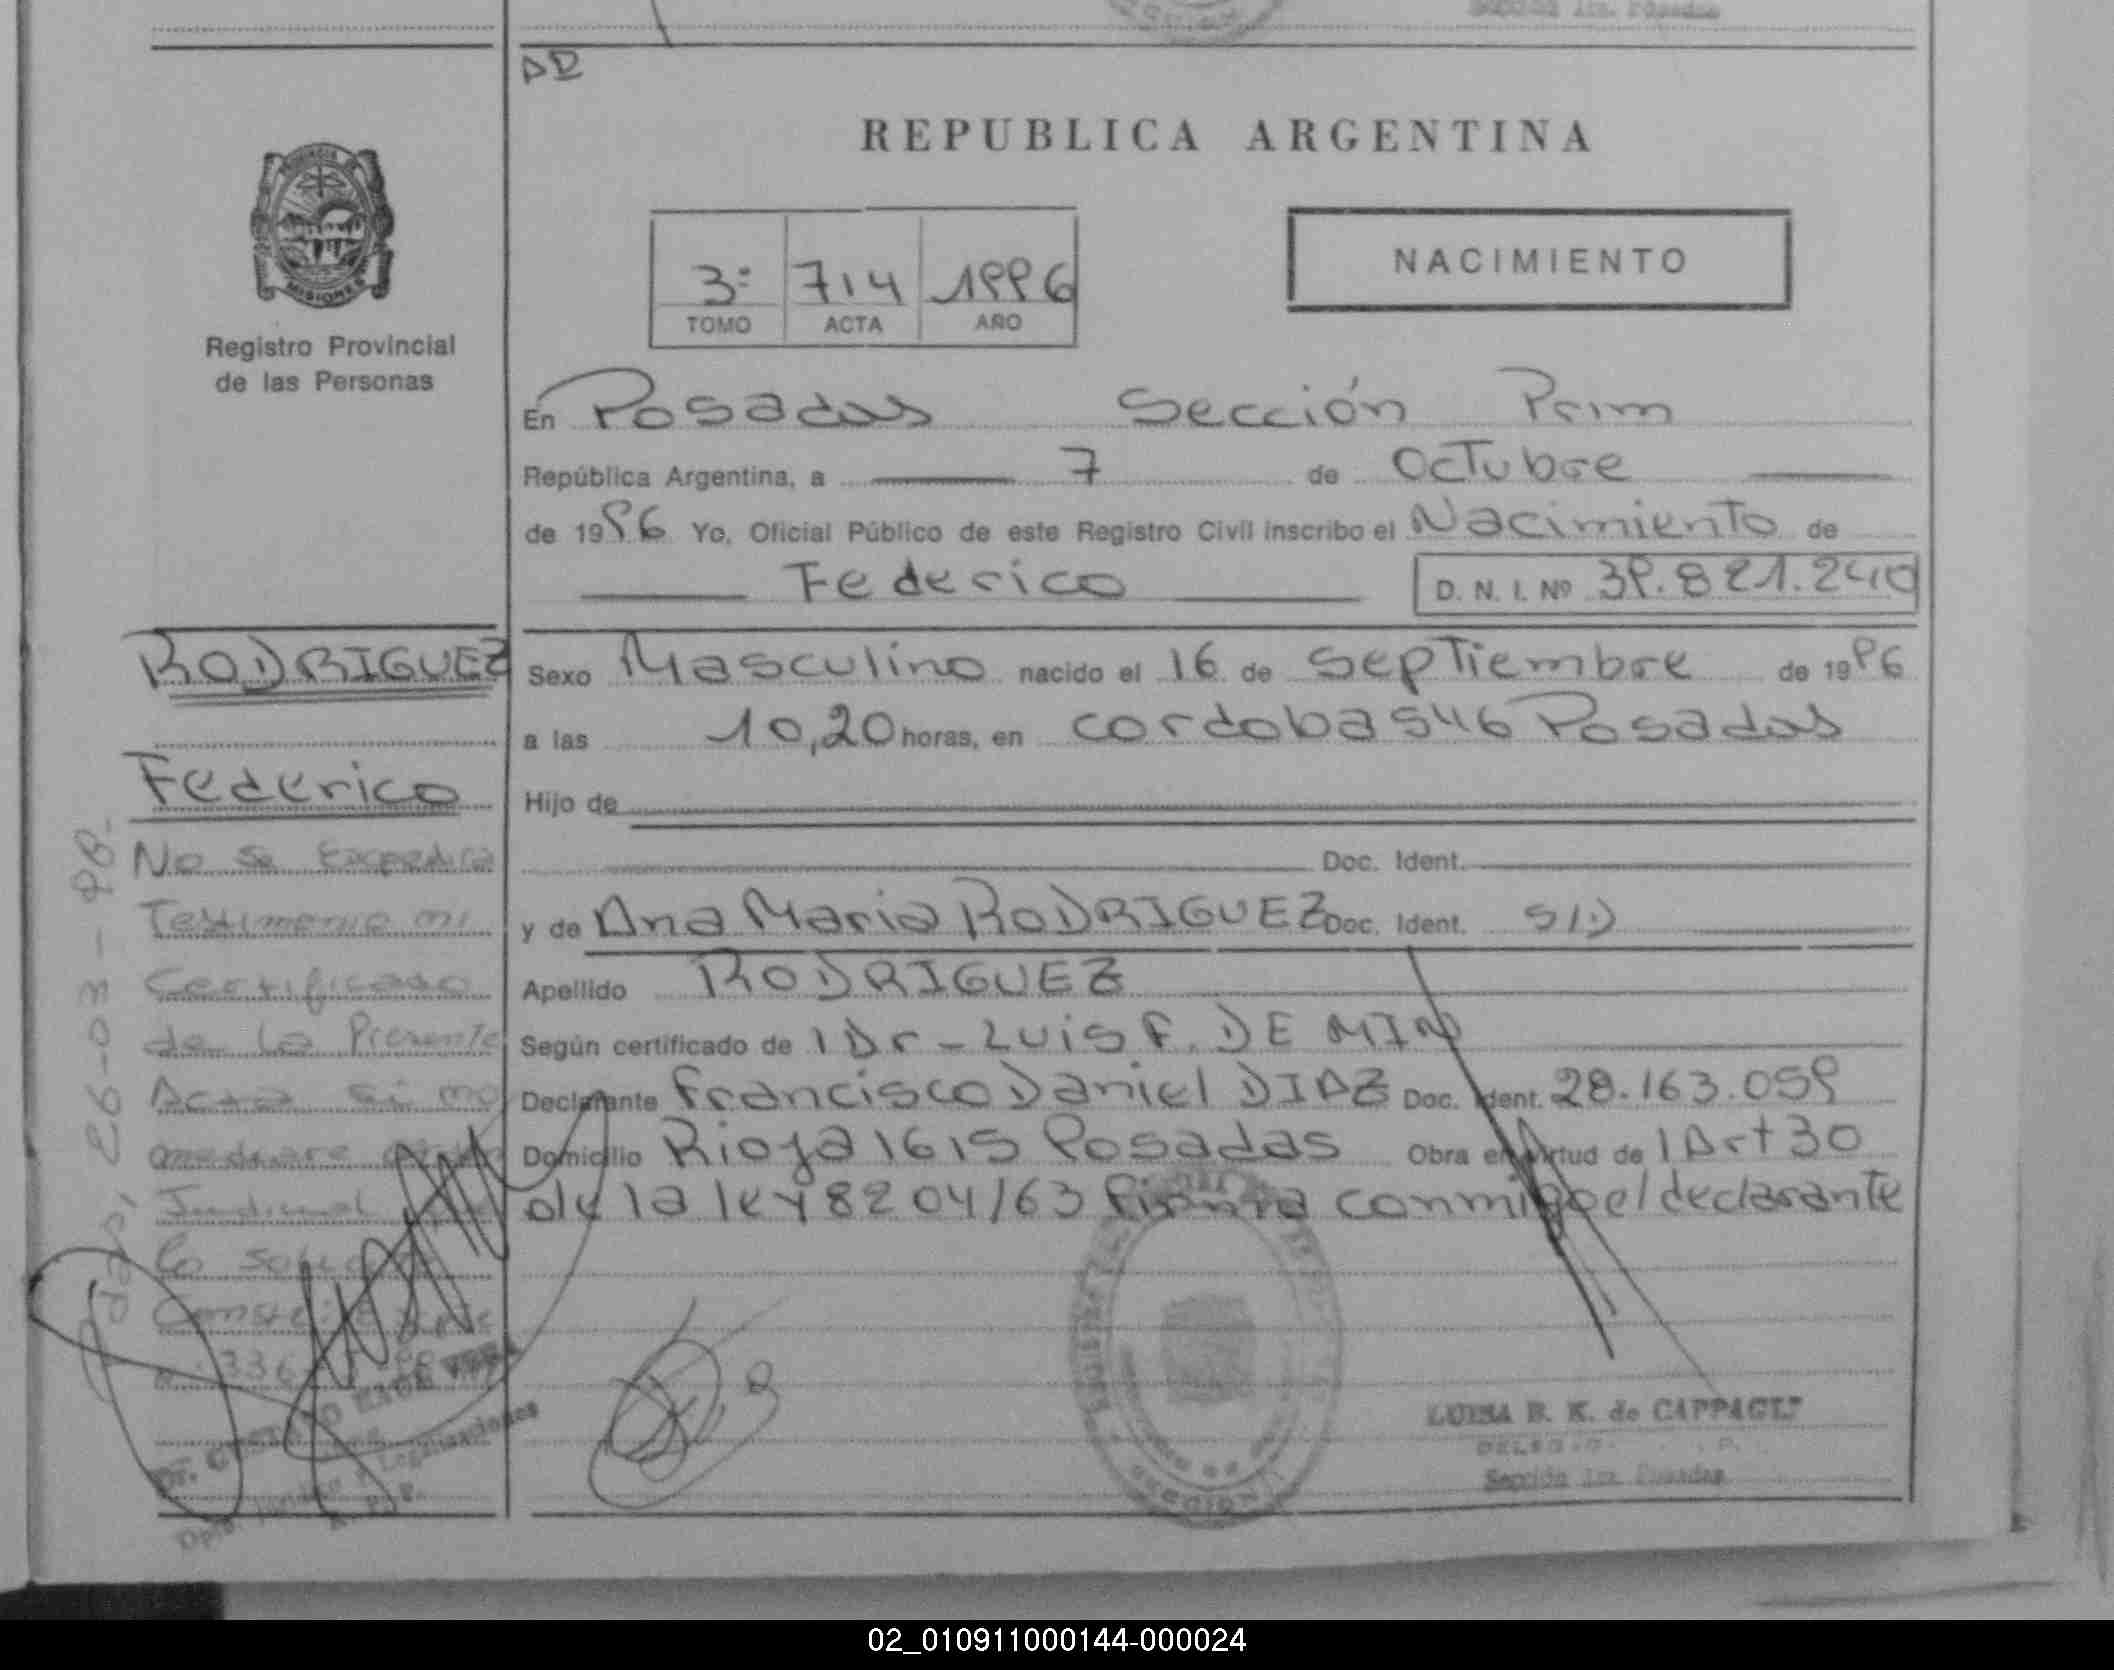 Sección 1ra. Posadas
DR
REPUBLICA ARGENTINA
PROVINCIA DE
MISIONES
Registro Provincial
de las Personas
3º 714 1996
TOMO ACTA AÑO
NACIMIENTO
En Posadas Sección Prim
República Argentina, a 7 de Octubre
de 1996 Yo, Oficial Público de este Registro Civil inscribo el Nacimiento de
Federico D. N. I. Nº 39.821.240
RODRIGUEZ
Federico
Sexo Masculino nacido el 16 de Septiembre de 1996
a las 10,20 horas, en cordoba 546 Posadas
Hijo de
Doc. Ident.
y de Ana Maria RODRIGUEZ Doc. Ident. S/D
Apellido RODRIGUEZ
Según certificado de l Dr - Luis F. DE MIN
Declarante Francisco Daniel DIAZ Doc. Ident. 28.163.059
Domicilio Rioja 1615 Posadas Obra en virtud de l Art 30
de la ley 8204/63 firma conmigo el declarante
No se Expedira
Testimonio ni
Certificado
de la Presente
Acta si no
mediare orden
Judicial
lo
336
26-03-98-
LUISA B. K. de CAPPAGLI
Sección 1ra. Posadas
02_010911000144-000024